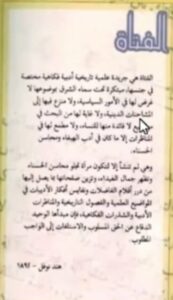 الفتاة
الفتاة هي جريدة علمية تاريخية أدبية فكاهية مختصة
في جنسها، مبتكرة تحت سماء الشرق بموضوعها لا
غرض لها في الأمور السياسية، ولا منزع فيها إلى
المشاحنات الدينية، ولا غاية لها من البحث في
لا فائدة منها للنساء، ولا مطمع لها في
المناظرات إلا ما كان في أدب الهيفاء ومحاسن
الحسناء.
وهي لم تنشأ إلا لتكون مرآة تجلو محاسن الحسناء
وتظهر جمال الغيداء، وتزين صفحاتها بما يصل إليها
من درر أقلام الفاضلات ونفايس أفكار الأديبات في
المواضيع العلمية والفصول التاريخية والمناظرات
الأدبية والشذرات الفكاهية، فإن مبدأها الوحيد
الدفاع عن الحق المسلوب والاستلفات إلى الواجب
المطلوب.
هند نوفل - ١٨٩٢